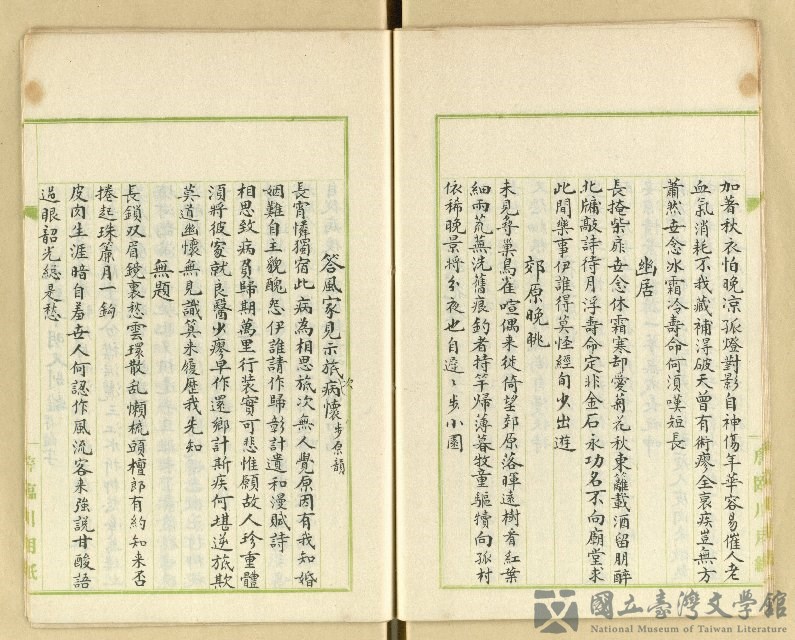 加著秋衣怕晚凉孤燈對影自神傷年華容易催人老
血氣消耗不我藏補淂破天曾有術瘳全衰疾豈無方
蕭然世念冰霜冷壽命何須嘆短長
幽居
長掩柴扉世念休霜寒却愛菊花秋東籬載酒留朋醉
北牖敲詩待月浮壽命定非金石永功名不向廟堂求
此間樂事伊誰得莫怪經旬少出遊
郊原晚眺
未見尋巢鳥雀喧偶来徙倚望郊原落暉遠樹看紅葉
細雨荒蕪洗舊痕釣者持竿歸薄暮牧童驅犢向孤村
依稀晚景将分夜也自遲〻步小園
答風家見示旅次病懷步原韻
長宵憐獨宿此病為相思旅次無人覺原因有我知婚
姻難自主貌醜怨伊誰請作歸彰計遣和漫賦詩
相思致病負歸期萬里行装實可悲惟願故人珍重體
須將彼家就良醫少瘳早作還鄉計斯疾何堪逆旅欺
莫道幽懷無見識算来履歷我先知
無題
長鎖双眉鏡裏愁雲環散乱懶梳頭檀郎有約知来否
捲起珠簾月一鈎
皮肉生涯暗自羞世人何認作風流客来強説甘酸語
過眼韶光縂是愁
國立臺灣文學館
National Museum of Taiwan Literature